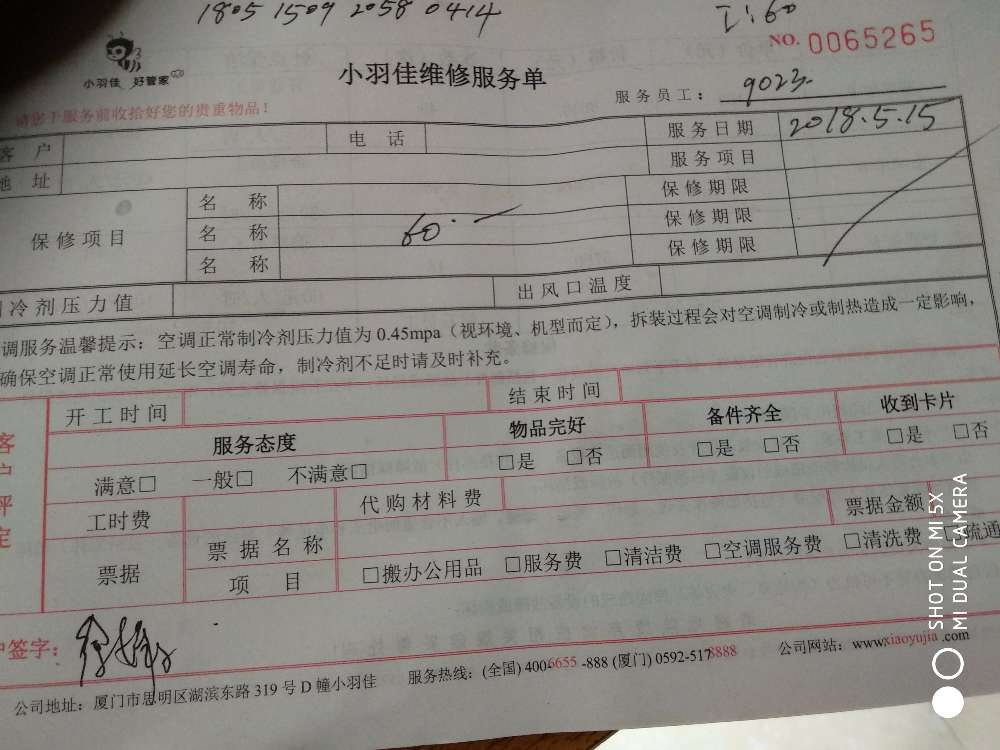 1805 1509 2058 0414
工:60
NO. 0065265
小羽佳 好管家
小羽佳维修服务单
请您于服务前收拾好您的贵重物品!
服务员工: 9023
客 户 电 话 服务日期 2018.5.15
地 址 服务项目
保修项目 名 称 保修期限
名 称 60.— 保修期限
名 称 保修期限
冷剂压力值 出风口温度
调服务温馨提示:空调正常制冷剂压力值为0.45mpa(视环境、机型而定),拆装过程会对空调制冷或制热造成一定影响,
确保空调正常使用延长空调寿命,制冷剂不足时请及时补充。
客户评定
开工时间 结束时间
服务态度 物品完好 备件齐全 收到卡片
满意□ 一般□ 不满意□ □是 □否 □是 □否 □是 □否
工时费 代购材料费
票据 票据名称 票据金额
项 目 □搬办公用品 □服务费 □清洁费 □空调服务费 □清洗费 □疏通
户签字:
公司地址:厦门市思明区湖滨东路319号D幢小羽佳 服务热线:(全国)400-6655-888 (厦门)0592-5178888 公司网站:www.xiaoyujia.com
SHOT ON MI 5X
MI DUAL CAMERA